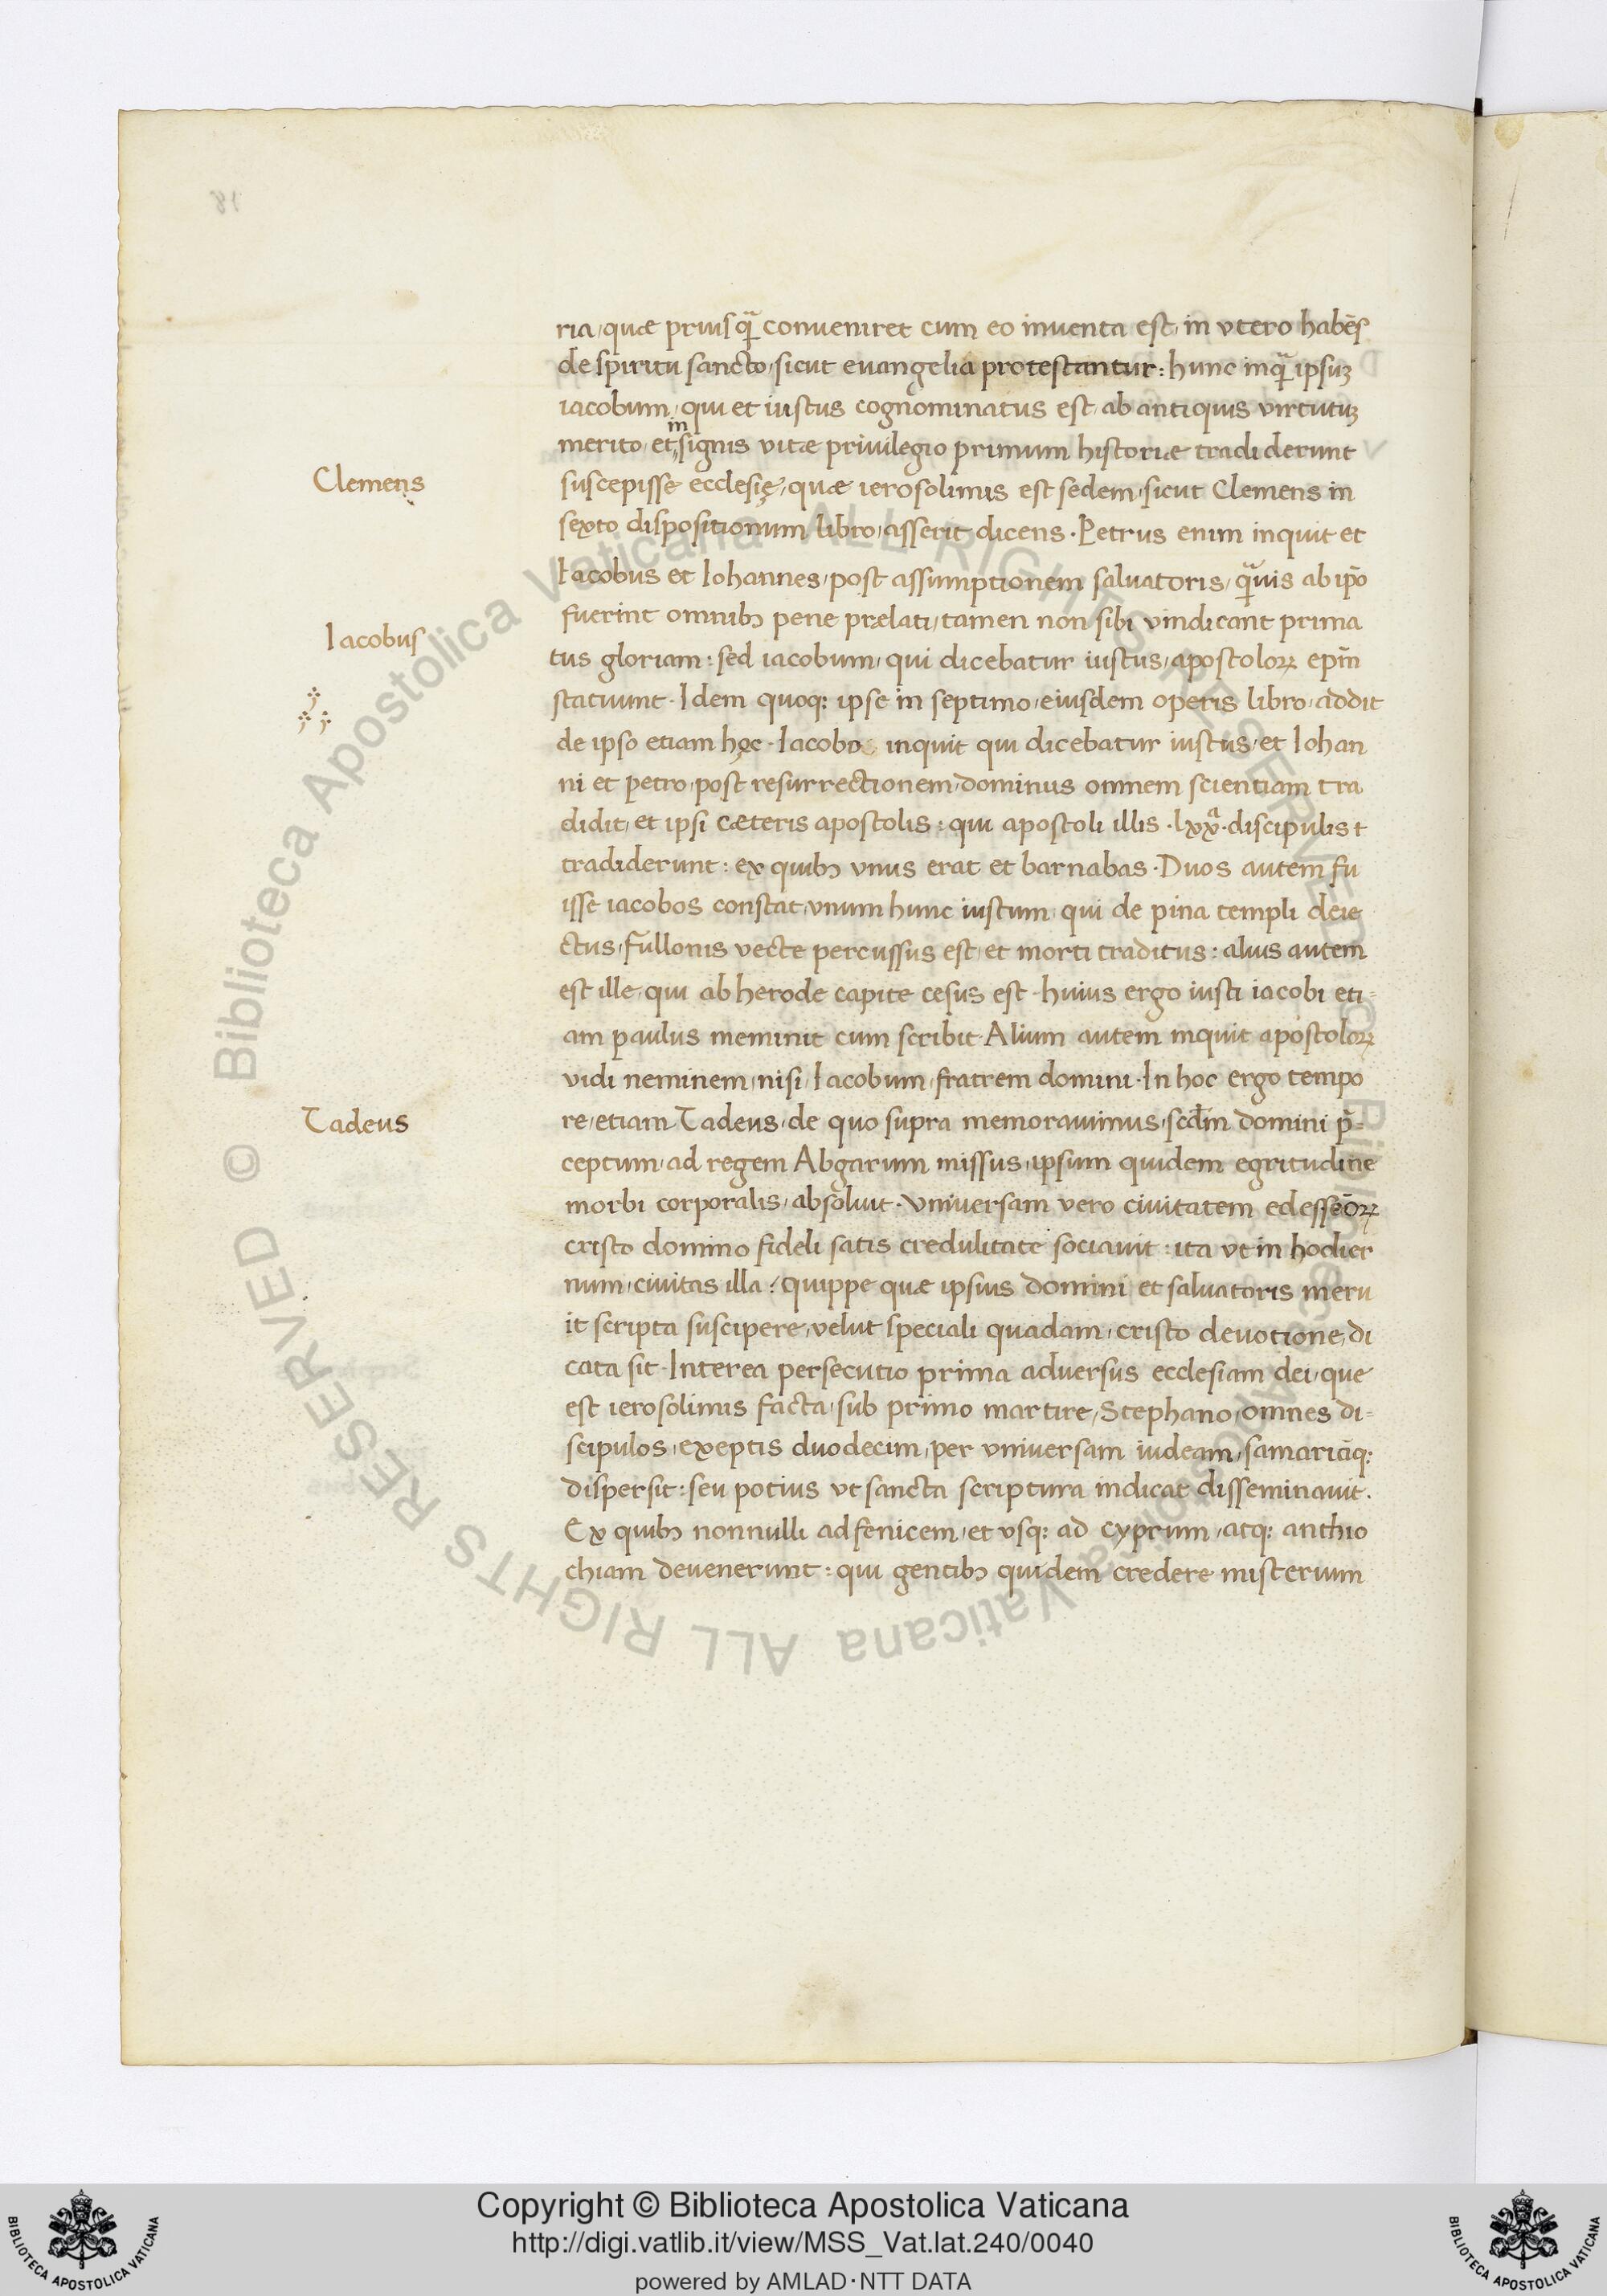 ria, quæ priusq̄ conueniret cum eo inuenta est, in vtero habēs
de spiritu sancto, sicut euangelia protestantur: hunc inq̄ ipsuꝫ
iacobum, qui et iustus cognominatus est, ab antiquis virtutuꝫ
in
merito, et signis vitæ priuilegio primum historiæ tradiderunt
Clemens
suscepisse ecclesię, quæ ierosolimis est sedem, sicut Clemens in
sexto dispositionum libro, asserit dicens. Petrus enim inquit et
Iacobus et Iohannes, post assumptionem saluatoris, q̄uis ab ip̄o
fuerint omnibꝫ pene prælati, tamen non sibi vindicant prima
Iacobus
tus gloriam: sed iacobum, qui dicebatur iustus, apostoloꝝ ep̄m
statuunt. Idem quoqꝫ ipse in septimo, eiusdem operis libro, addit
de ipso etiam hęc. Iacobo inquit qui dicebatur iustus, et Iohan
ni et petro, post resurrectionem, dominus omnem scientiam tra
didit, et ipsi cæteris apostolis: qui apostoli illis .lxxᵃ. discipulis t
tradiderunt: ex quibꝫ vnus erat et barnabas. Duos autem fu
isse iacobos constat, vnum hunc iustum, qui de pina templi deie
ctus, fullonis vecte percussus est, et morti traditus: alius autem
est ille, qui ab herode capite cesus est. huius ergo iusti iacobi eti=
am paulus meminit cum scribit. Alium autem inquit apostoloꝝ
vidi neminem, nisi, Iacobum, fratrem domini. In hoc ergo tempo
Tadeus
re, etiam Tadeus, de quo supra memorauimus, scd̄m domini p̄=
ceptum, ad regem Abgarum missus, ipsum quidem egritudine
morbi corporalis, absoluit. Vniuersam vero ciuitatem edesseōꝝ
cristo domino fideli satis credulitate sociauit: ita vt in hodier
num, ciuitas illa: quippe quæ ipsius domini et saluatoris meru
it scripta suscipere, velut speciali quadam, cristo deuotione, di
cata sit. Interea persecutio prima aduersus ecclesiam dei, que
est ierosolimis facta, sub primo martire, Stephano, omnes di=
scipulos, exeptis duodecim, per vniuersam iudeam, samariāqꝫ
dispersit: seu potius vt sancta scriptura indicat disseminauit.
Ex quibꝫ nonnulli ad fenicem, et vsqꝫ ad cyprum, atqꝫ anthio
chiam deuenerunt: qui gentibꝫ quidem credere misterium
© Biblioteca Apostolica Vaticana ALL RIGHTS RESERVED © Biblioteca Apostolica Vaticana ALL RIGHTS RESERVED
Copyright © Biblioteca Apostolica Vaticana
http://digi.vatlib.it/view/MSS_Vat.lat.240/0040
powered by AMLAD·NTT DATA
BIBLIOTECA APOSTOLICA VATICANA
BIBLIOTECA APOSTOLICA VATICANA